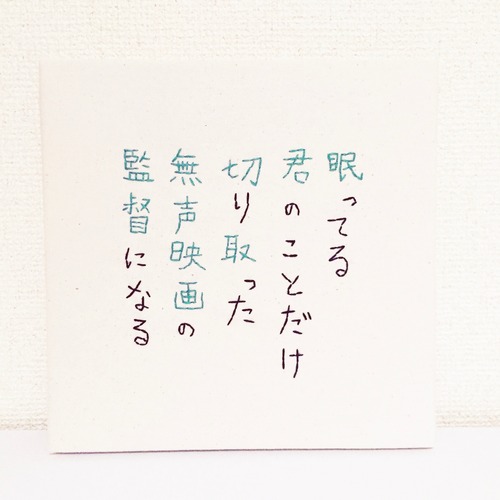 眠ってる
君のことだけ
切り取った
無声映画の
監督になる